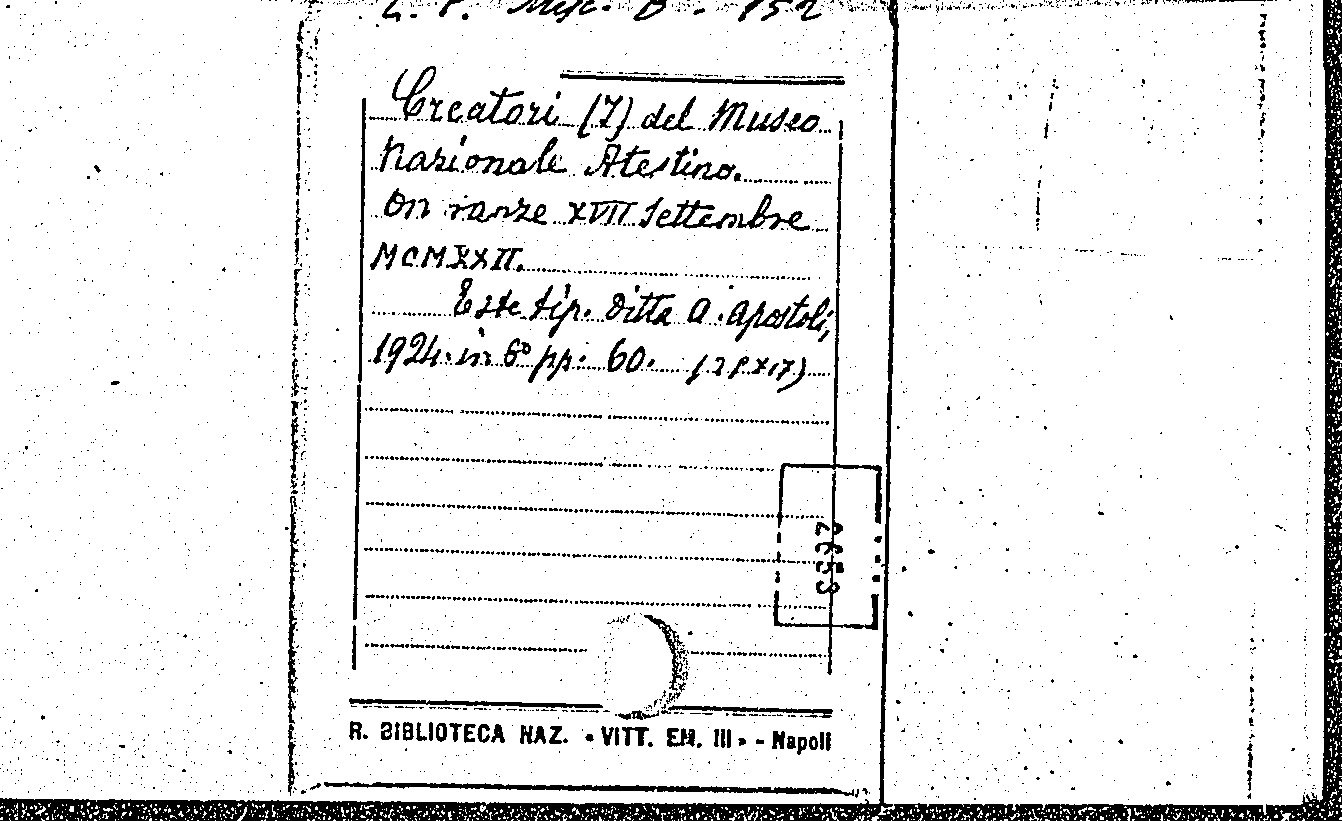 L. P. Misc. B - 152
Creatori (I) del Museo
Nazionale Atestino.
On ranze XVII Settembre
MCMXXII.
Este tip. Ditta A. Apostoli,
1924. in 8° pp. 60.
2653
R. BIBLIOTECA NAZ. « VITT. EM. III » - Napoli